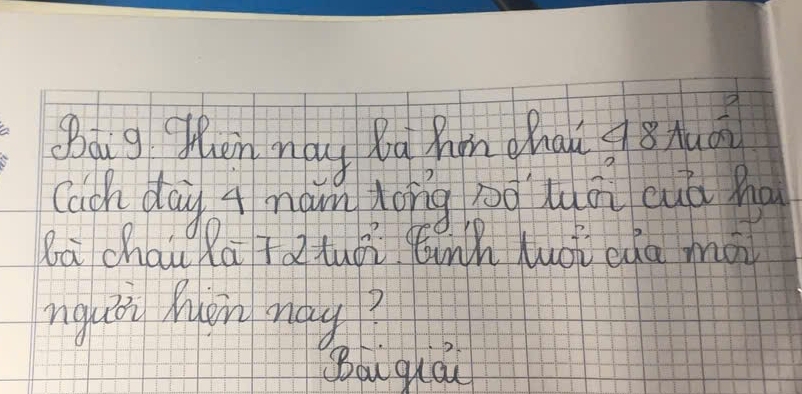 Bài 9. Hiện nay bà hơn cháu 48 tuổi
Cách đây 4 năm tổng số tuổi của hai
bà cháu là 72 tuổi. Tính tuổi của mỗi
người hiện nay?
Bài giải